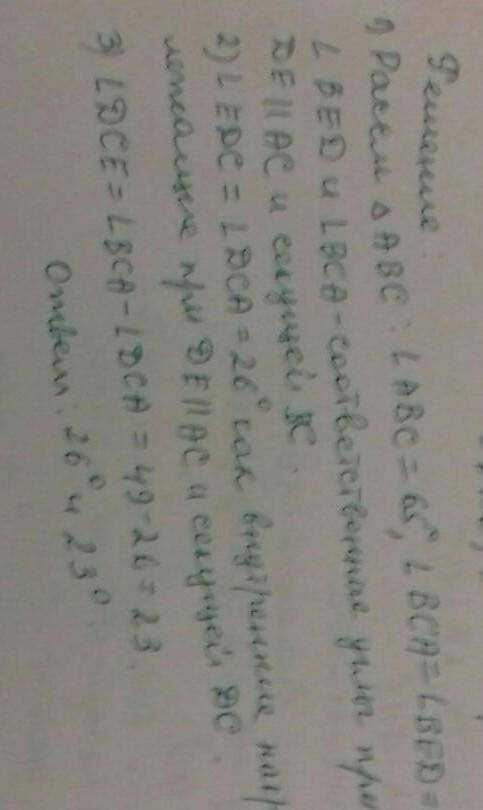 Решение:
1) Рассм △ABC: ∠ABC = 65°, ∠BCA = ∠BED =
∠BED и ∠BCA - соответственные углы при
DE || AC и секущей BC.
2) ∠EDC = ∠DCA = 26° как внутренние накр
лежащие при DE || AC и секущей DC.
3) ∠DCE = ∠BCA - ∠DCA = 49 - 26 = 23.
Ответ: 26° и 23°.